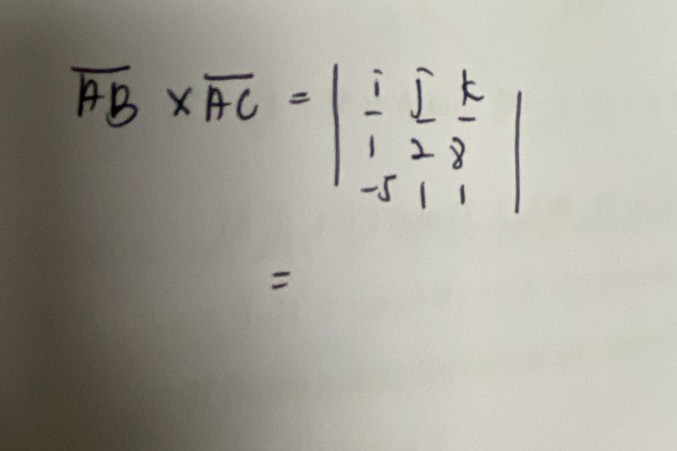 AB × AC = | i j k |
1 2 8
-5 1 1
=